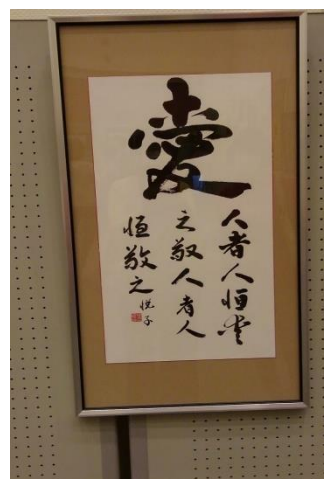 愛
人者人恒愛
之敬人者人
恒敬之
悦子